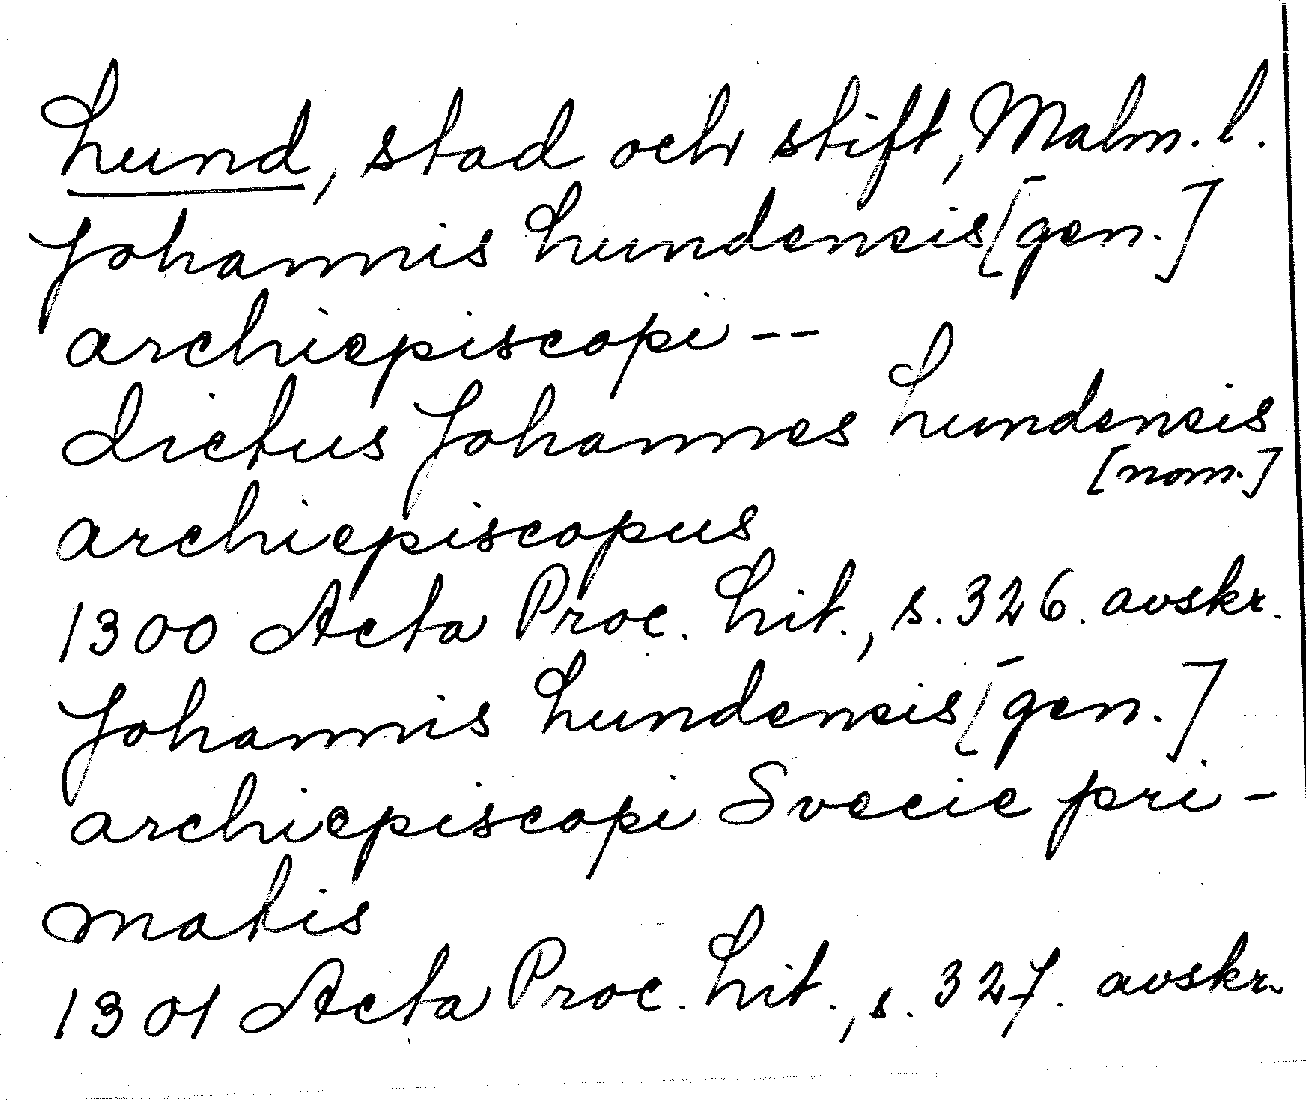 Lund, stad och stift, Malm. l.
Johannis Lundensis [gen.]
archiepiscopi --
dictus Johannes Lundensis
[nom.]
archiepiscopus
1300 Acta Proc. Lit., s. 326. avskr.
Johannis Lundensis [gen.]
archiepiscopi Svecie pri-
matis
1301 Acta Proc. Lit., s. 327. avskr.